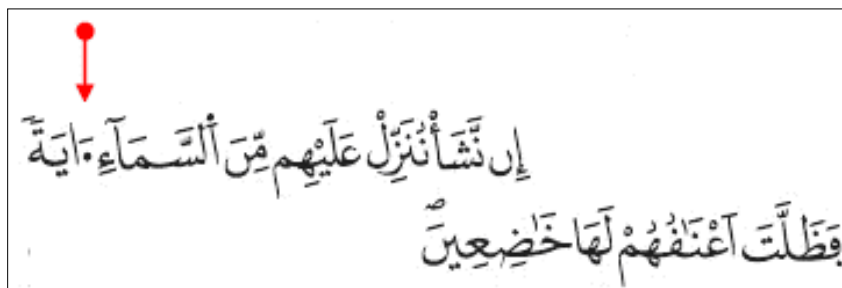 إِن نَّشَأْ نُنَزِّلْ عَلَيْهِم مِّنَ اَ۬لسَّمَآءِ ءَايَةٗ
ڢَظَلَّتَ اَعْنَٰڧُهُمْ لَهَا خَٰضِعِينَۖ